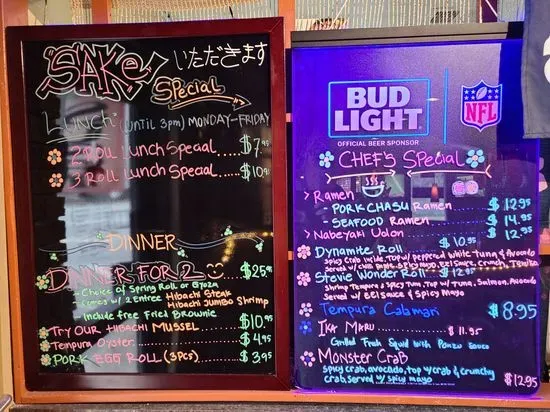 "SAKe"
いただきます
Special
LUNCH (until 3pm) MONDAY-FRIDAY
2 Roll Lunch Special ..... $7.95
3 Roll Lunch Special ..... $10
DINNER
DINNER FOR 2 ..... $25
- Choice of Spring Roll or Gyoza
- Comes w/ 2 Entree Hibachi Steak
Hibachi Jumbo Shrimp
Include free Fried Brownie
Try Our Hibachi Mussel ..... $10.95
Tempura Oyster ..... $4.95
Pork Egg Roll (3pcs) ..... $3.95
BUD
LIGHT
NFL
OFFICIAL BEER SPONSOR
CHEF's Special
> Ramen
- PORK CHASU Ramen ..... $12.95
- SEAFOOD Ramen ..... $14.95
> Nabeyaki Udon ..... $12.95
Dynamite Roll $10.95
Spicy Crab inside, Top w/ Peppered white Tuna & Avocado
Served w/ Spicy Mayo, Eel Sauce, Crunch,
Stevie Wonder Roll $12.95
Shrimp Tempura & Spicy Tuna, Top w/ Tuna, Salmon, Avocado
Served w/ Eel Sauce & Spicy Mayo
Tempura Calamari $8.95
Ika Maru ..... $11.95
Grilled Fresh Squid with Ponzu Sauce
Monster Crab
Spicy crab, avocado, top w/ crab & crunchy
crab, served w/ spicy mayo ..... $12.95